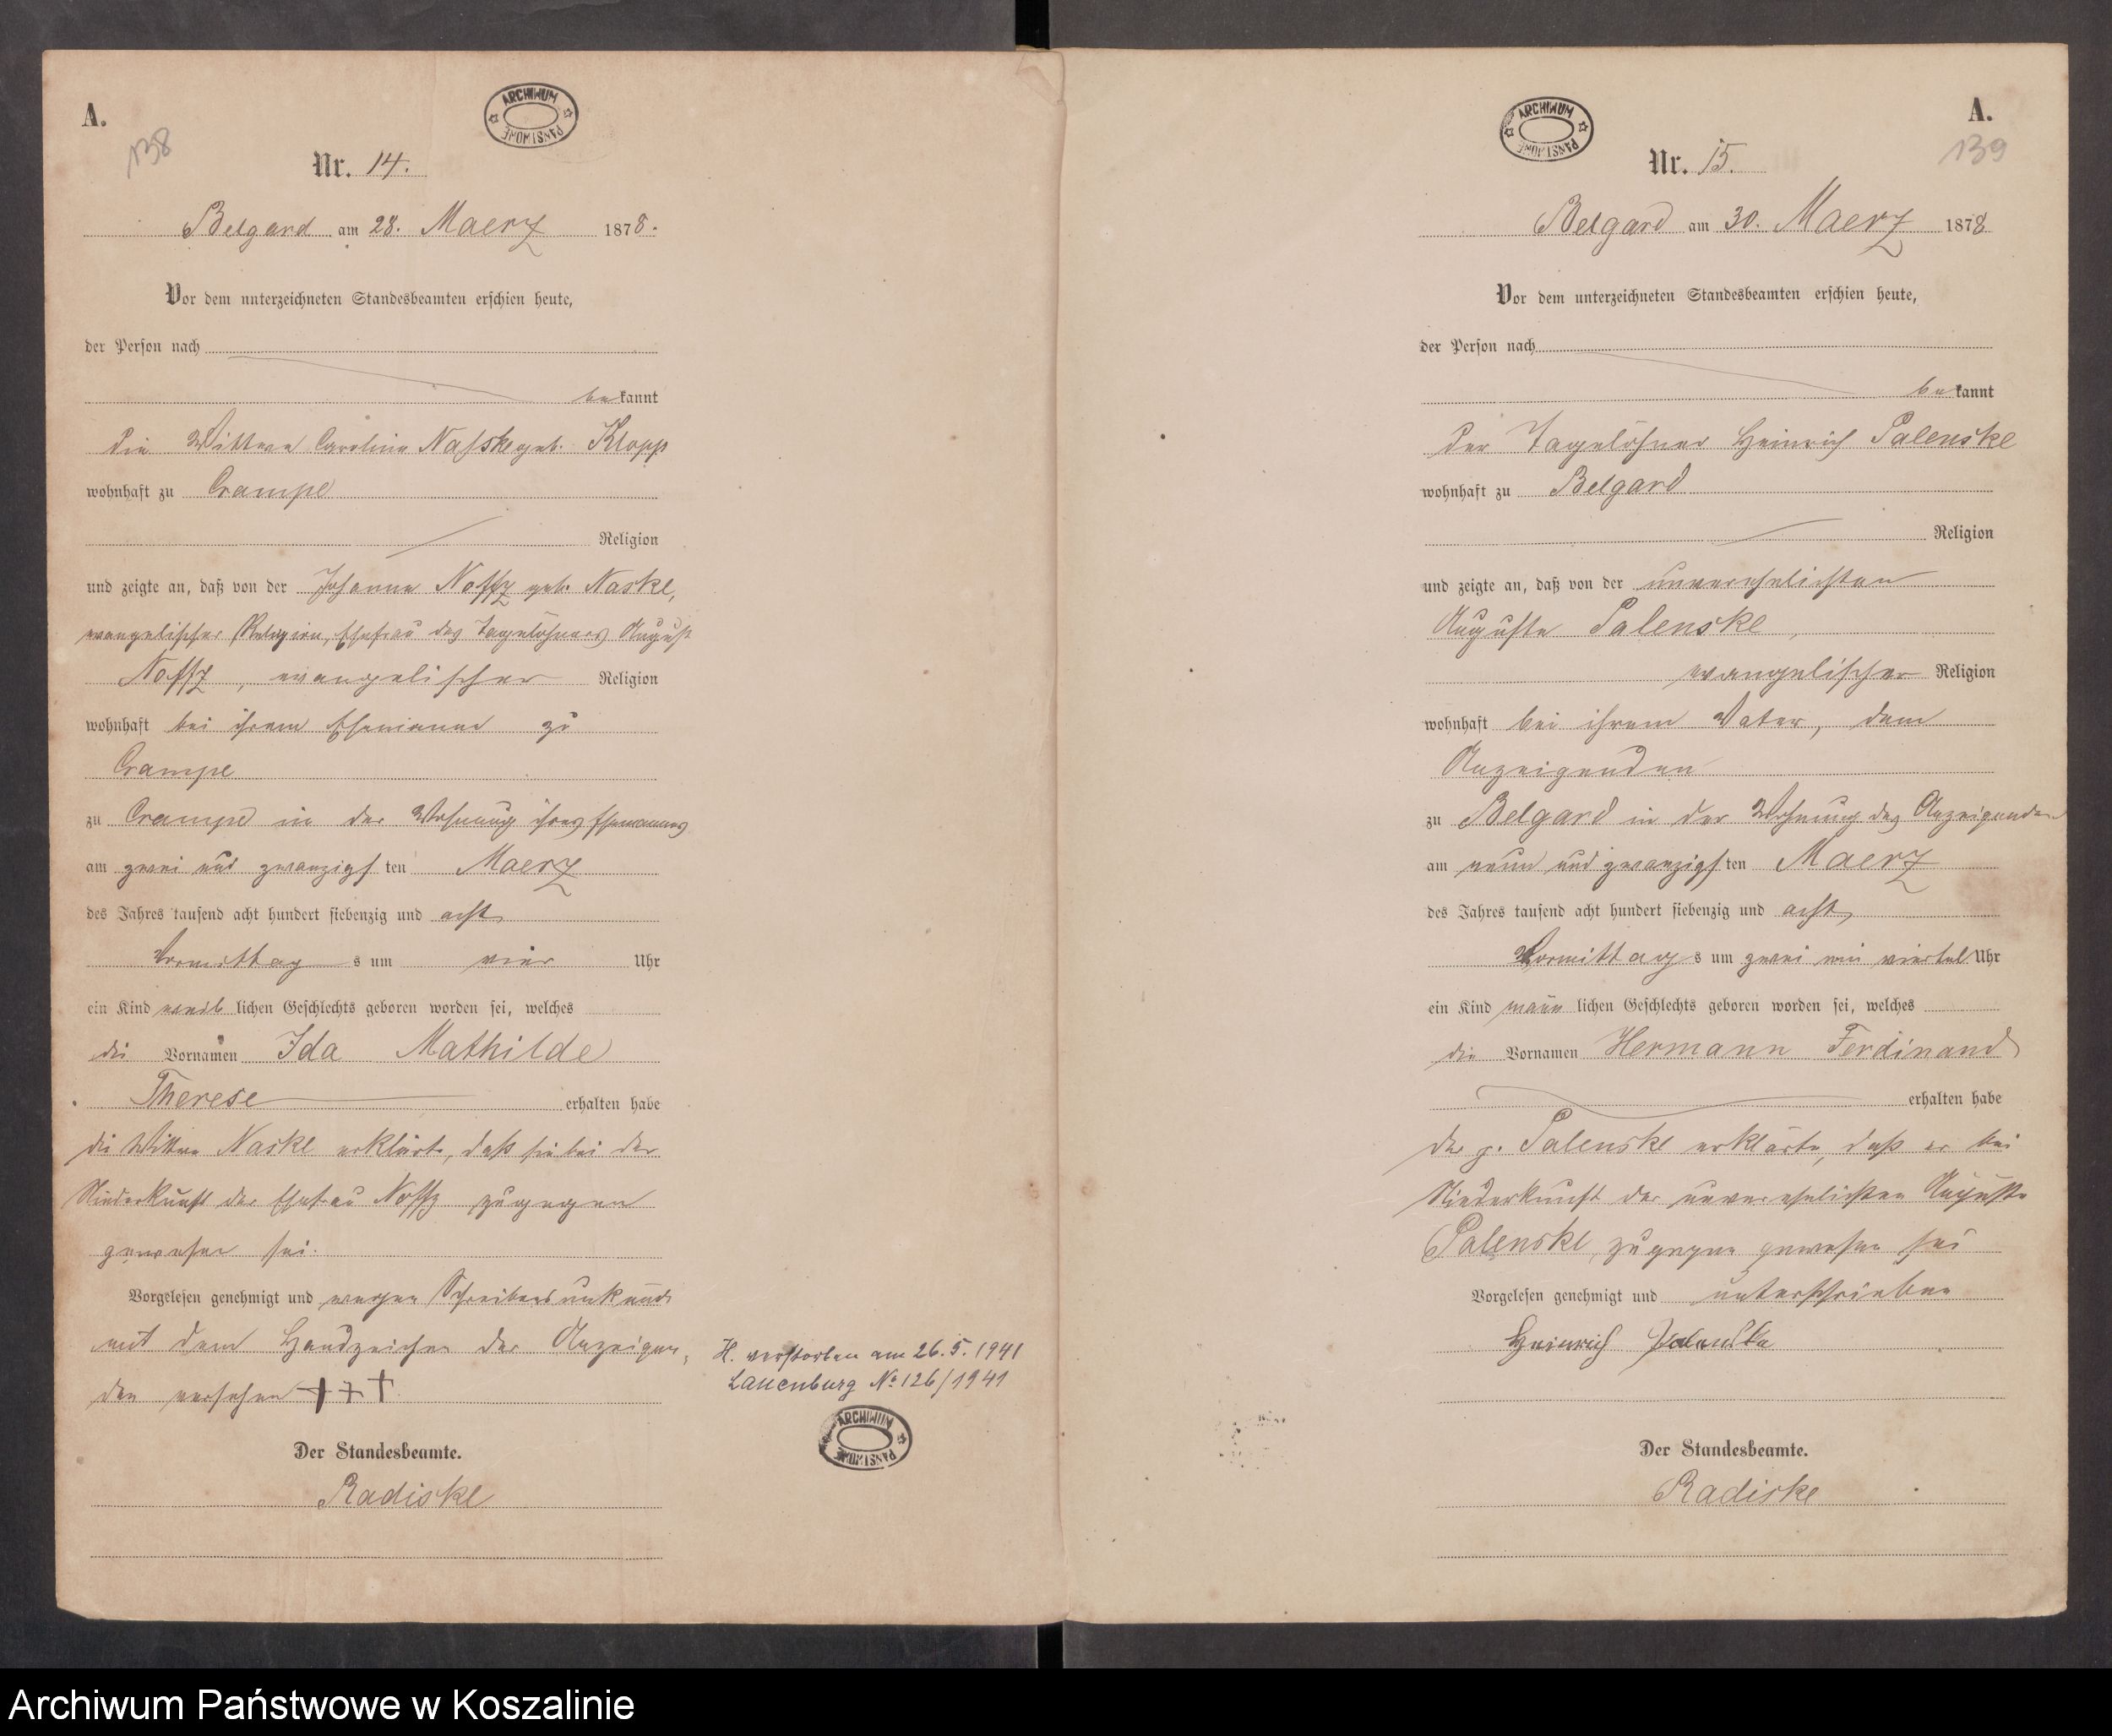 A.
138
ARCHIWUM PAŃSTWOWE
Nr. 14.
Belgard am 28. Maerz 1878.
Vor dem unterzeichneten Standesbeamten erschien heute,
der Person nach
bekannt
die Wittwe Caroline Naßke geb. Klopp
wohnhaft zu Crampe
Religion
und zeigte an, daß von der Johanne Noffz geb. Naske,
evangelischer Religion, Ehefrau des Tagelöhners August
Noffz, evangelischer Religion
wohnhaft bei ihrem Ehemanne zu
Crampe
zu Crampe in der Wohnung ihres Ehemannes
am zwei und zwanzigsten Maerz
des Jahres tausend acht hundert siebenzig und acht
Vormittags um vier Uhr
ein Kind weiblichen Geschlechts geboren worden sei, welches
die Vornamen Ida Mathilde
Therese erhalten habe
die Wittwe Naske erklärte, daß sie bei der
Niederkunft der Ehefrau Noffz zugegen
gewesen sei.
Vorgelesen genehmigt und wegen Schreibensunkunde
mit dem Handzeichen der Anzeigen-
den versehen +++
Der Standesbeamte.
Radiske
H. verstorben am 26.5.1941
Lauenburg No 126/1941
ARCHIWUM PAŃSTWOWE
A.
139
ARCHIWUM PAŃSTWOWE
Nr. 15.
Belgard am 30. Maerz 1878
Vor dem unterzeichneten Standesbeamten erschien heute,
der Person nach
bekannt
der Tagelöhner Heinrich Palenske
wohnhaft zu Belgard
Religion
und zeigte an, daß von der unverehelichten
Auguste Palenske,
evangelischer Religion
wohnhaft bei ihrem Vater, dem
Anzeigenden
zu Belgard in der Wohnung des Anzeigenden
am neun und zwanzigsten Maerz
des Jahres tausend acht hundert siebenzig und acht
Vormittags um zwei ein viertel Uhr
ein Kind männlichen Geschlechts geboren worden sei, welches
die Vornamen Hermann Ferdinand
erhalten habe
der p. Palenske erklärte, daß er bei
Niederkunft der unverehelichten Auguste
Palenske, zugegen gewesen sei
Vorgelesen genehmigt und unterschrieben
Heinrich Palenske
Der Standesbeamte.
Radiske
Archiwum Państwowe w Koszalinie